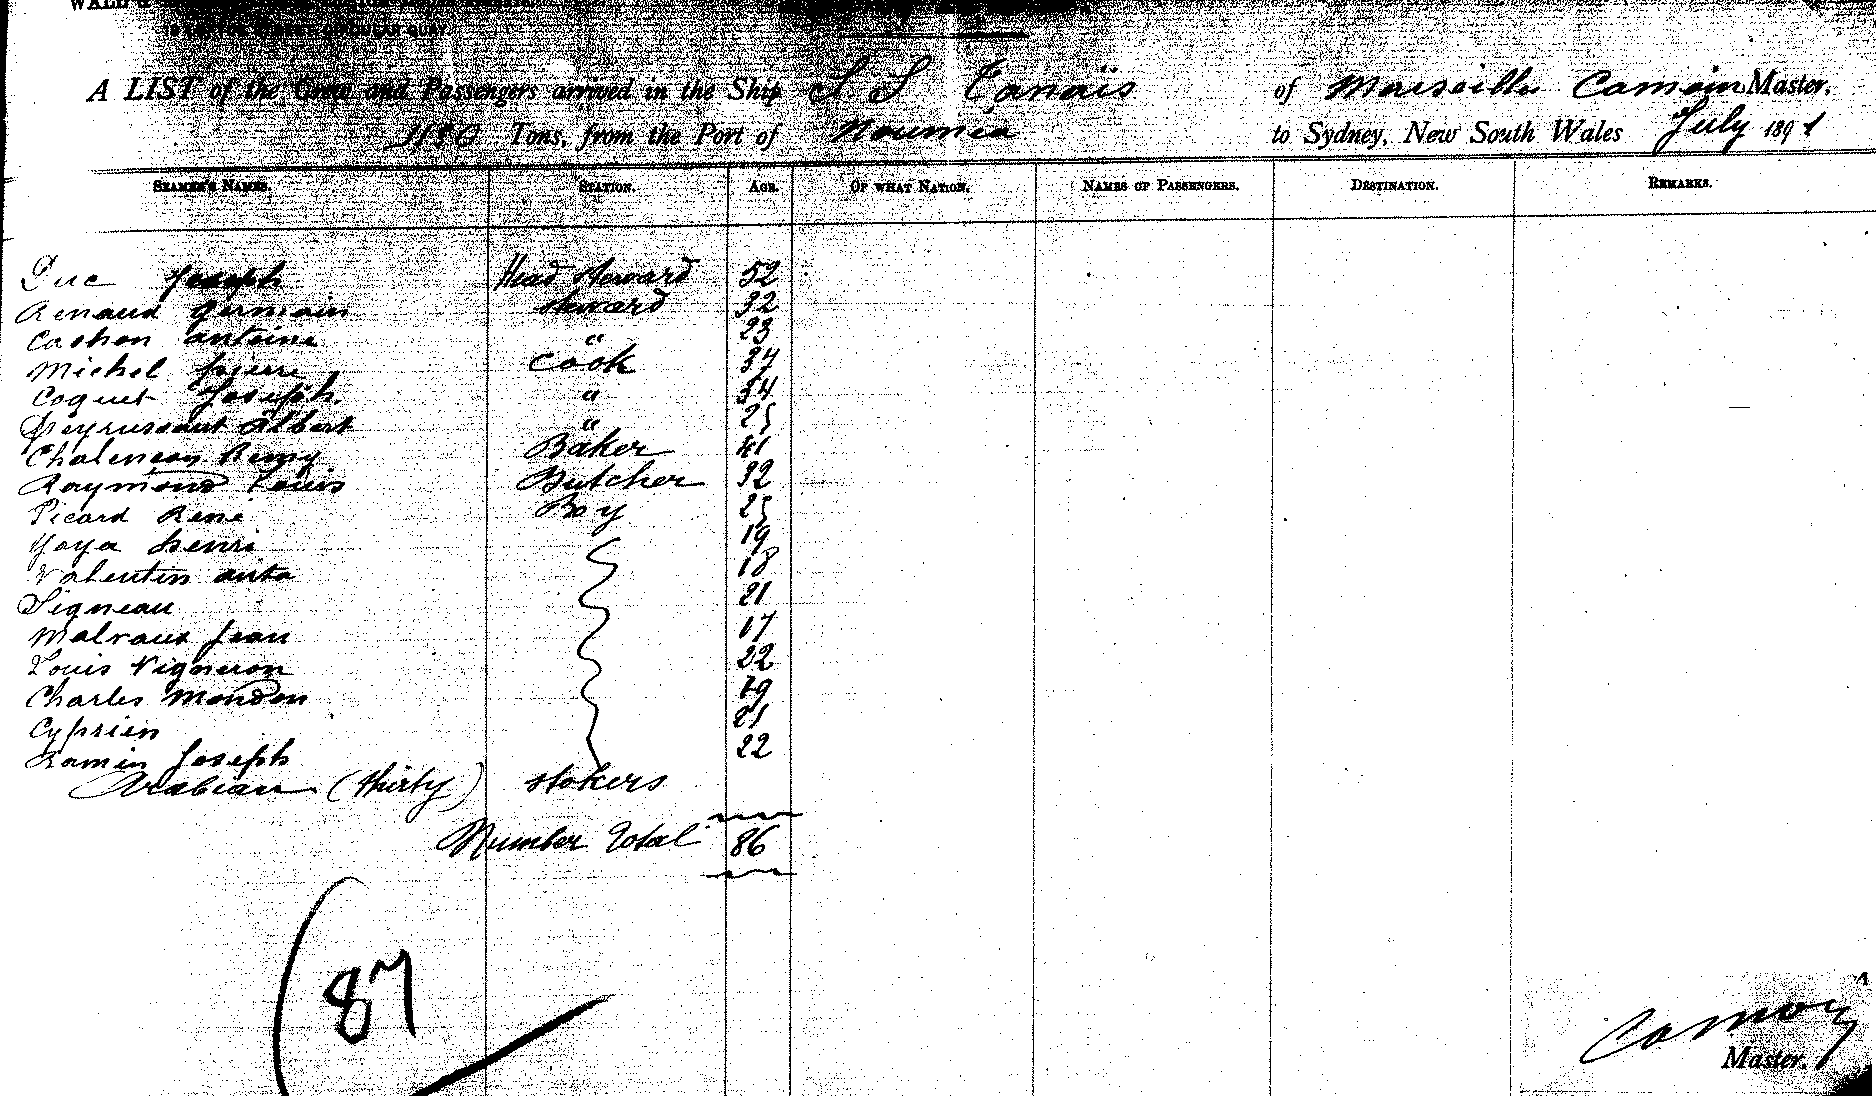 A LIST of the Crew and Passengers arrived in the Ship S S Tanaïs of Marseille Camoin Master,
1180 Tons, from the Port of Noumea to Sydney, New South Wales July 1891
SEAMEN'S NAMES. STATION. AGE. OF WHAT NATION. NAMES OF PASSENGERS. DESTINATION. REMARKS.
Duc Joseph Head Steward 52
Renaud Germain Steward 32
Cachon Antoine " 23
Michel Pierre Cook 34
Coquet Joseph " 54
Peyrussant Albert " 25
Chalencon Remy Baker 41
Raymond Louis Butcher 32
Picard René Boy 25
Yoya henri 19
Valentin 18
Signeau 21
Malvaux Jean 17
Louis Vigneron 22
Charles Mondon 19
Cyprien 21
Ramin Joseph 22
Arabian (thirty) Stokers
Number Total 86
87
Camoin
Master.